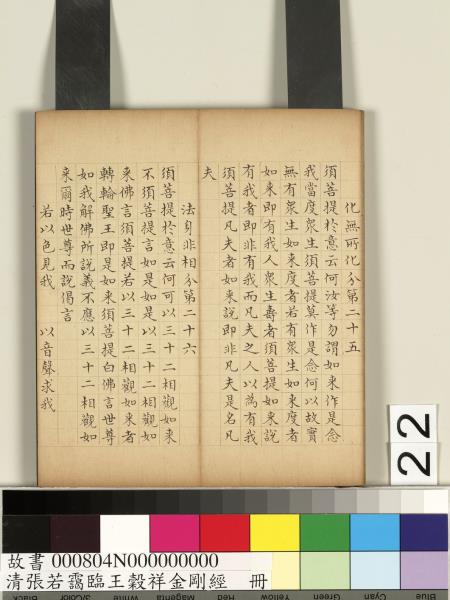 化無所化分第二十五
須菩提於意云何汝等勿謂如來作是念
我當度衆生須菩提莫作是念何以故實
無有衆生如來度者若有衆生如來度者
如來即有我人衆生壽者須菩提如來說
有我者即非有我而凡夫之人以為有我
須菩提凡夫者如來說即非凡夫是名凡
夫
法身非相分第二十六
須菩提於意云何可以三十二相觀如來
不須菩提言如是如是以三十二相觀如
來佛言須菩提若以三十二相觀如來者
轉輪聖王即是如來須菩提白佛言世尊
如我解佛所說義不應以三十二相觀如
来爾時世尊而說偈言
若以色見我 以音聲求我
22
故書 000804N000000000
清張若靄臨王穀祥金剛經 冊
Black 3/Color White Magenta Red Yellow Green Cyan Blue